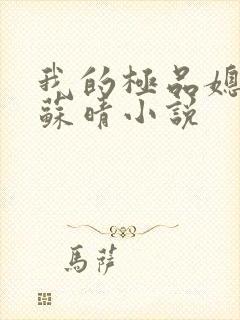 我的極品媳
蘇晴小說
馬薩